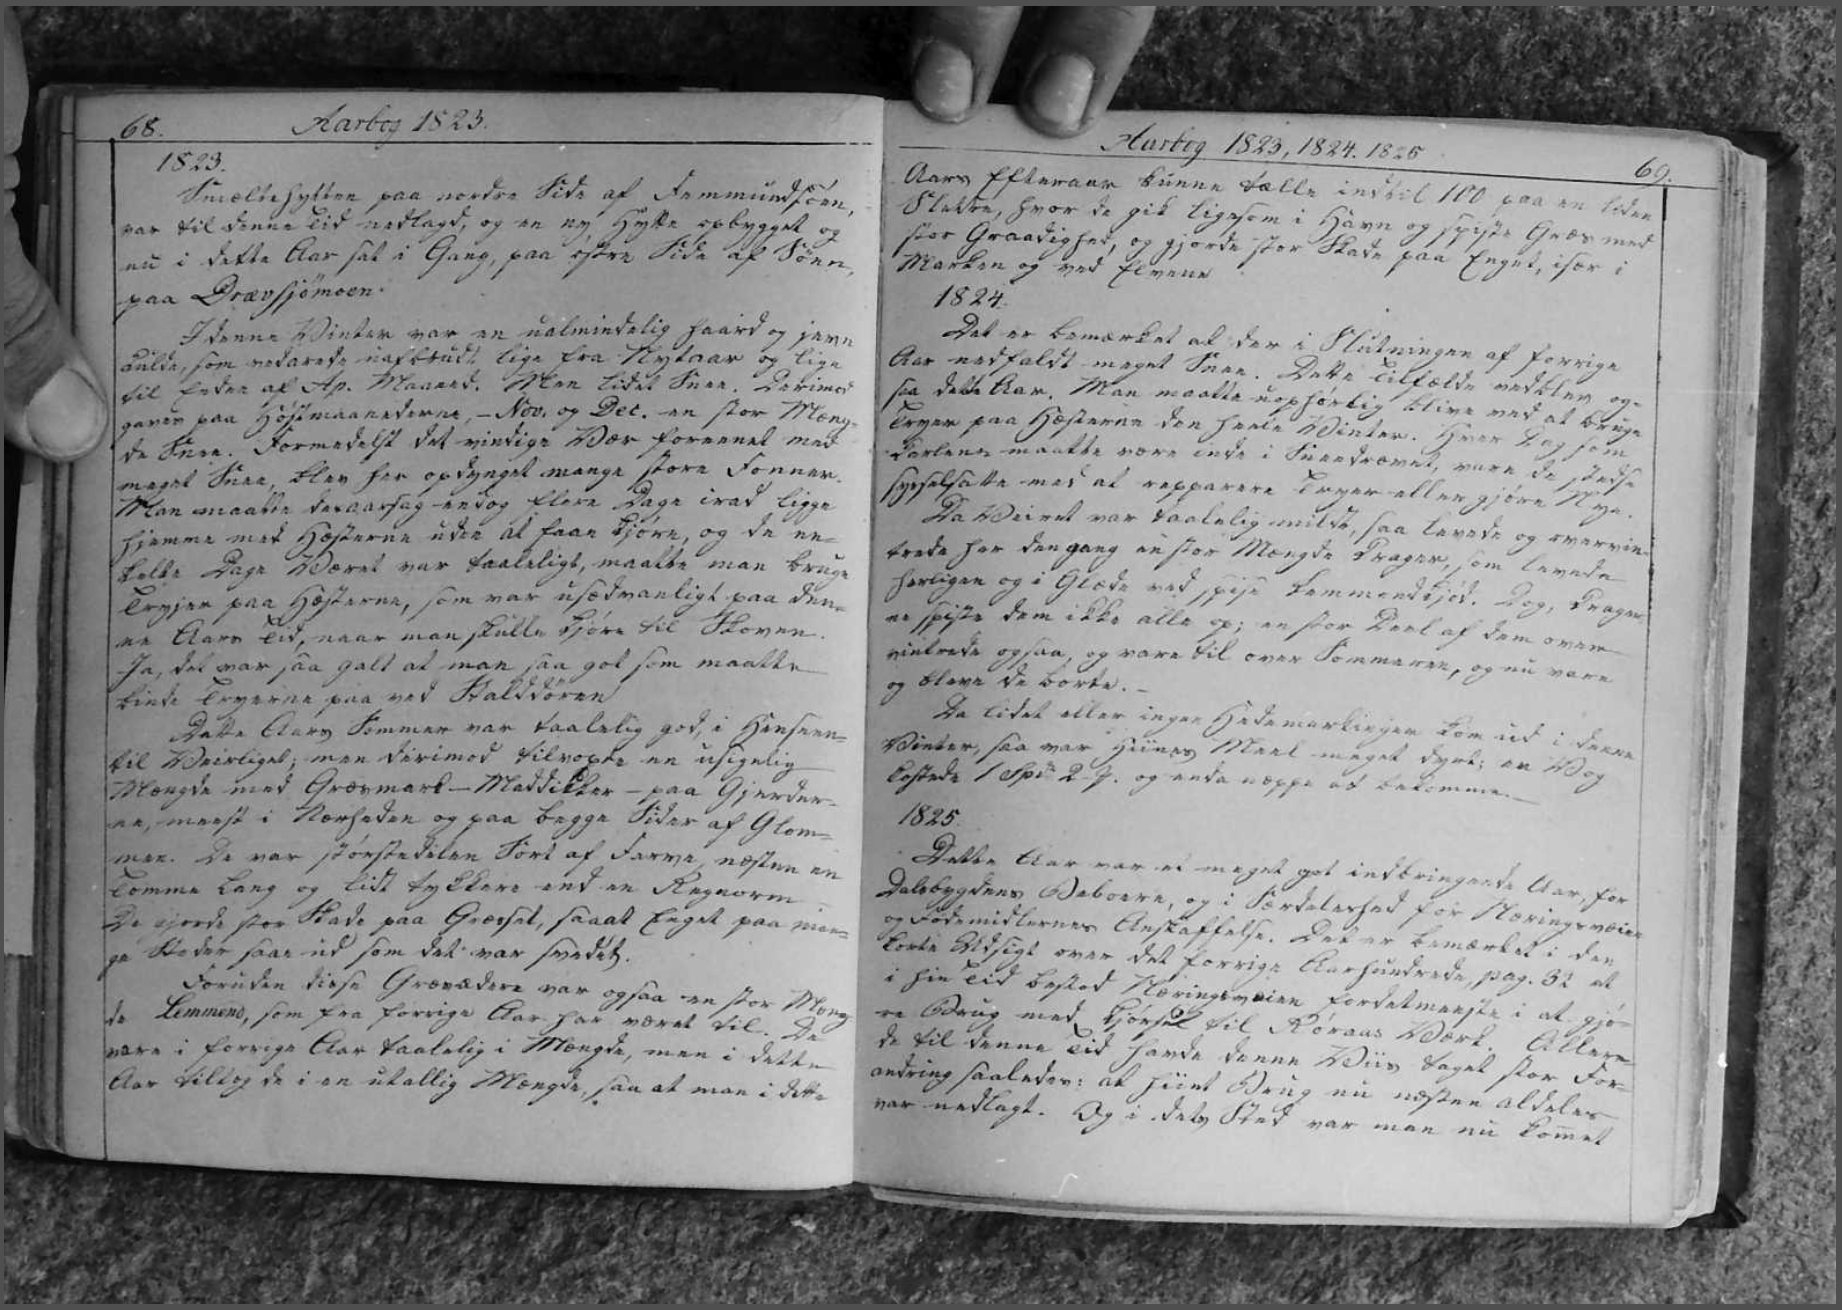 68. Aarbog 1823.
1823.
Smæltehytten paa nordre Side af Femmundsöen,
var til denne Tid nedlagd, og en ny Hytte opbygget og
nu i dette Aar sat i Gang, paa östre Side af Söen,
paa Drævsjömoen.
I denne Vinter var en ualmindelig haard og jevn
Kulde, som vedvarede uafbrudt lige fra Nytaar og lige
til Enden af Ap. Maaned. Men lidet Snee. Derimod
gaves paa Höstmaanederne, - Nov. og Dec. en stor Mæng-
de Snee. Formedelst det vindige Vær foreenet med
meget Snee, blev her opdynget mange store Fonner.
Man maatte deraarsag endog flere Dage irad ligge
hjemme med Hæsterne uden at faae kjöre, og de en-
kelte Dage Været var taaleligt, maatte man bruge
Tryjer paa Hæsterne, som var usædvanligt paa den-
ne Aars Tid, naar man skulle kjöre til Skoven.
Ja, det var saa galt at man saa got som maatte
binde Tryerne paa ved Stalddören
Dette Aars Sommer var taalelig god, i Henseen-
til Veirliget; men derimod tilvoxte en usigelig
Mængde med Græsmark - Maddikker - paa Gjerder-
ne, meest i Nærheden og paa begge Sider af Glom-
men. De var störstedelen Sort af Farve, næsten en
Tomme lang og lidt tykkere end en Regnorm
De gjorde stor Skade paa Græsset, saaat Enget paa man-
ge Steder saae ud som det var svedet.
Foruden disse Græsædere var ogsaa en stor Mæng
de Lemmend, som fra forrige Aar har været til. De
vare i forrige Aar taalelig i Mængde, men i dette
Aar tiltog de i en utallig Mængde, saa at man i dette
Aarbog 1823, 1824. 1825
69.
Aars Efteraar kunne tælle indtil 100 paa en liden
Slette, hvor de gik ligesom i Havn og spiste Græs med
stor Graadighed, og gjorde stor Skade paa Enget, især i
Marken og ved Elvene
1824.
Det er bemærket at der i Slutningen af forrige
Aar nedfaldt meget Snee. Dette Tilfælde vedblev og-
saa dette Aar. Man maatte uophörlig blive ved at bruge
Tryer paa Hæsterne den heele Vinter. Hver Dag som
Karlene maatte være inde i Sneedrævet, vare de stedse
sysselsatte med at repparere Tryer eller gjöre Nye.
Da Veiret var taalelig mildt, saa levede og overvin-
trede her dengang en stor Mængde Krager, som levede
herligen og i Glæde ved spise Lemmendkjöd. Dog, Krager
ne spiste dem ikke alle op; en stor Deel af dem over-
vintrede ogsaa, og vare til over Sommeren, og nu vare
og bleve de borte. -
Da lidet eller ingen Hedemarkinger kom ud i denne
Vinter, saa var Hiines Meel meget dyrt; en Vog
kostede 1 Spd 2 . og enda næppe at bekomme. -
1825.
Dette Aar var et meget got indbringende Aar, for
Dalsbygdens Beboere, og i Særdeleshed for Næringsveien
og Födemidlernes Anskaffelse. Det er bemærket i den
korte Udsigt over det forrige Aarhundrede, pag. 32 at
i hin Tid bestod Næringsveien fordetmeeste i at gjö-
re Brug med Kjörsel til Röraas Værk. Allere-
de til denne Tid havde denne Viis taget stor For-
andring saaledes: at hiint Brug nu næsten aldeles
var nedlagt. Og i dets Sted var man nu kom̅et